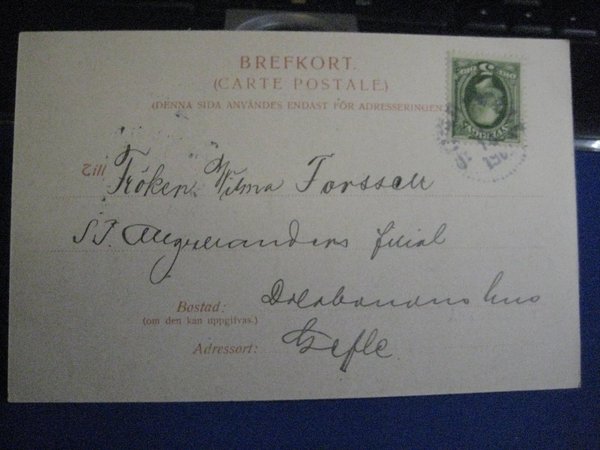 BREFKORT.
(CARTE POSTALE)
(DENNA SIDA ANVÄNDES ENDAST FÖR ADRESSERINGEN
Till Fröken Wilma Forssell
filial
Bostad:
(om den kan uppgifvas.)
Dalabanans hus
Adressort: Gefle.